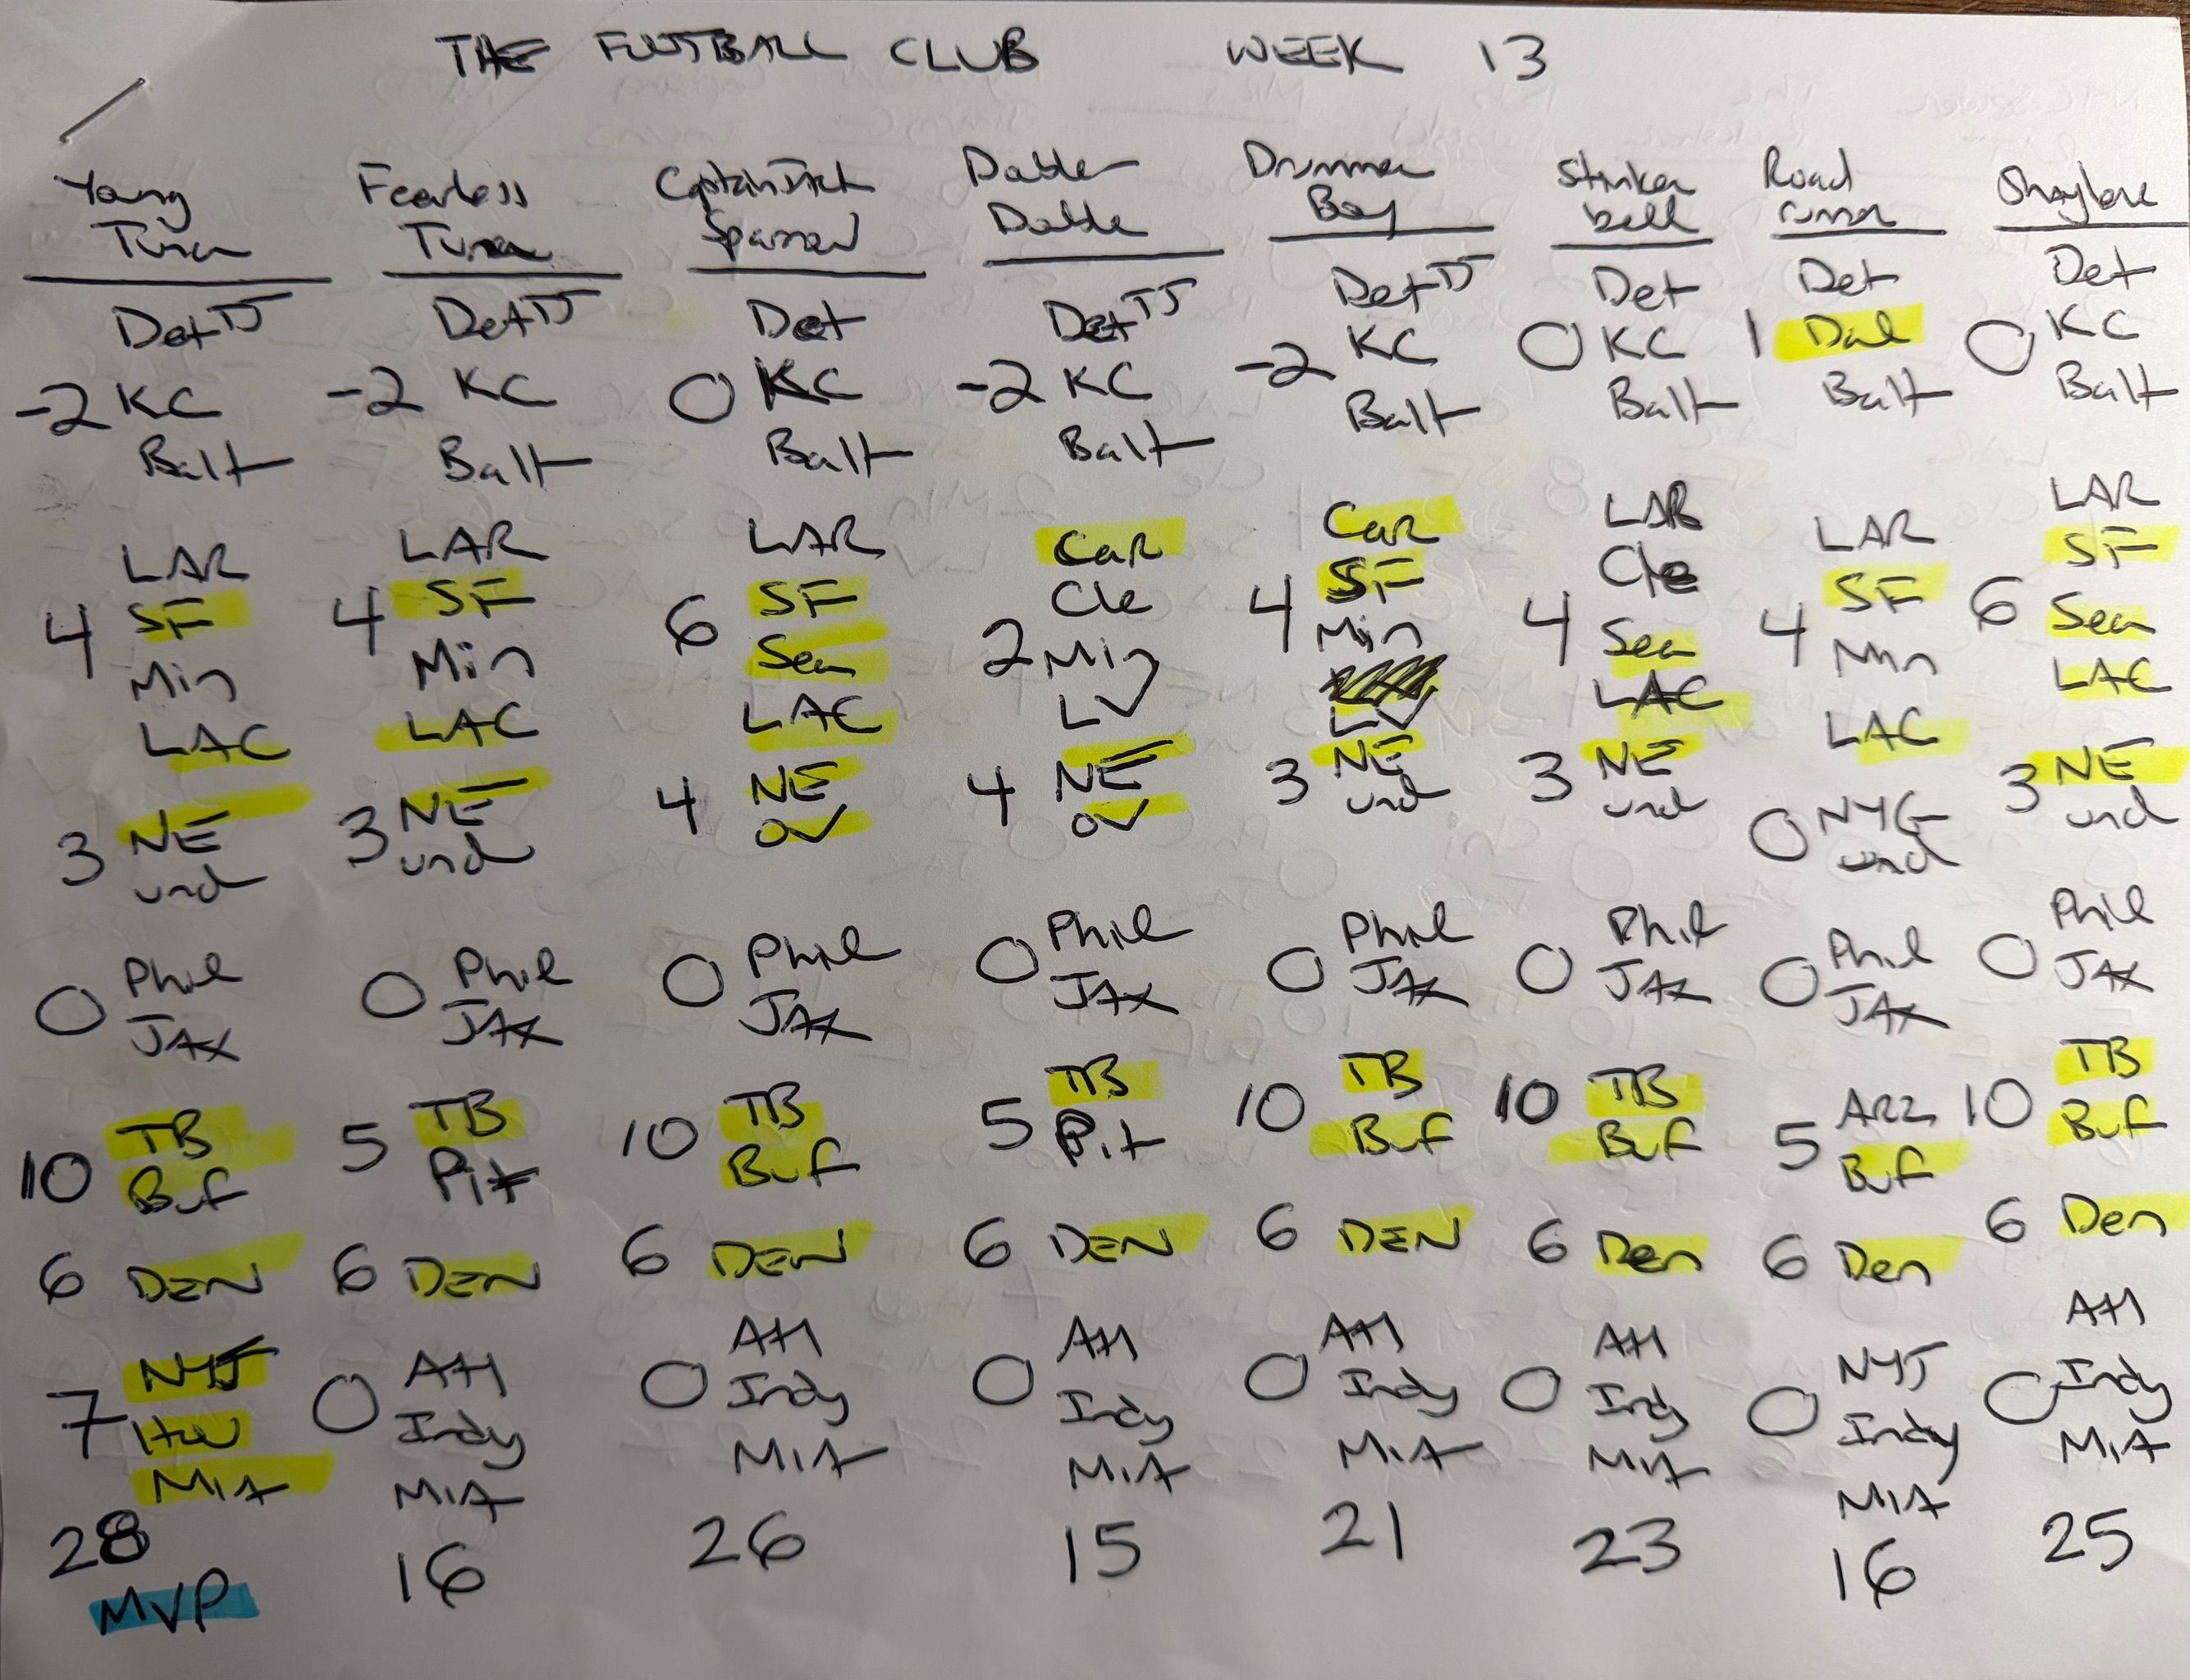 THE FOOTBALL CLUB WEEK 13
Young
Tuna
Det TJ
-2 KC
Balt
LAR
4 SF
Min
LAC
3 NE
und
0 Phil
JAX
TB
10 Buf
6 DEN
NYJ
7 Hou
MIA
28
MVP
Fearless
Tuna
Det TJ
-2 KC
Balt
LAR
4 SF
Min
LAC
3 NE
und
0 Phil
JAX
5 TB
Pit
6 DEN
Atl
0 Indy
MIA
16
Captain Jack
Sparrow
Det
0 KC
Balt
LAR
6 SF
Sea
LAC
4 NE
OV
0 Phil
JAX
10 TB
Buf
6 DEN
Atl
0 Indy
MIA
26
Dabble
Det TJ
-2 KC
Balt
Car
Cle
2 Min
LV
4 NE
OV
0 Phil
JAX
TB
5 Pit
6 DEN
Atl
0 Indy
MIA
15
Drummer
Boy
Det TJ
-2 KC
Balt
Car
4 SF
Min
LV
3 NE
und
0 Phil
JAX
TB
10 Buf
6 DEN
Atl
0 Indy
MIA
21
Stinker
bell
Det
0 KC
Balt
LAR
Cle
4 Sea
LAC
3 NE
und
0 Phil
JAX
10 TB
Buf
6 Den
Atl
0 Indy
MIA
23
Road
runner
Det
1 Dal
Balt
LAR
4 SF
Min
LAC
0 NYG
und
0 Phil
JAX
ARZ
5 Buf
6 Den
NYJ
0 Indy
MIA
16
Det
0 KC
Balt
LAR
SF
6 Sea
LAC
3 NE
und
0 Phil
JAX
TB
10 Buf
6 Den
Atl
0 Indy
MIA
25